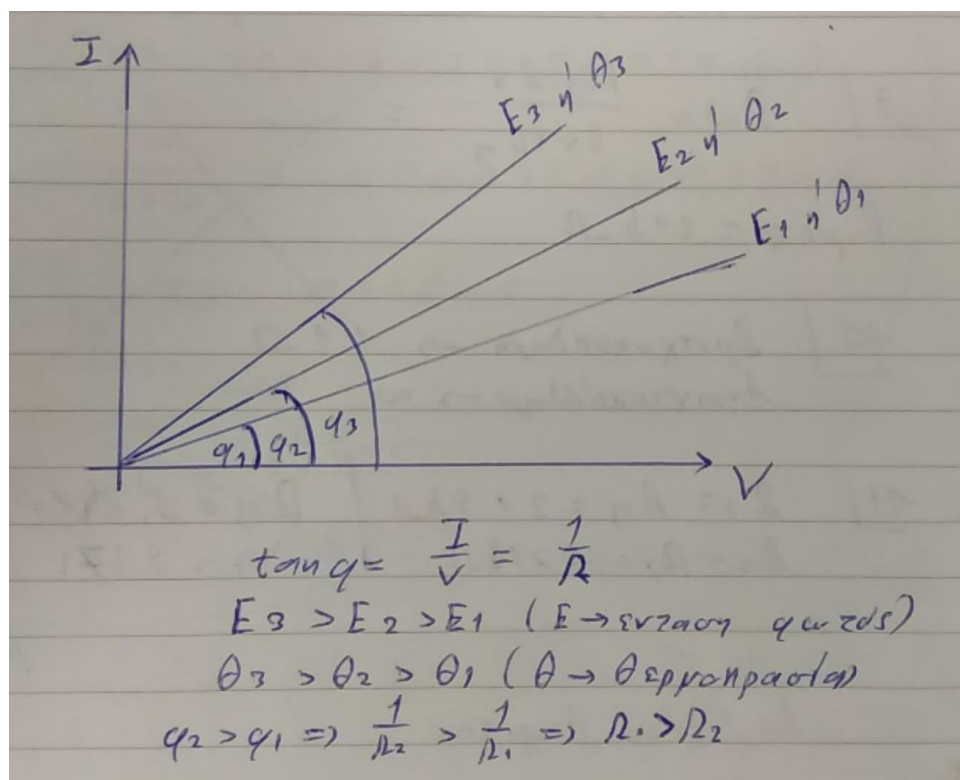 I
E3 ή θ3
E2 ή θ2
E1 ή θ1
φ1 φ2 φ3
V
tanφ = I/V = 1/R
E3 > E2 > E1 (E → ενταση φωτός)
θ3 > θ2 > θ1 (θ → θερμοκρασία)
φ2 > φ1 => 1/R2 > 1/R1 => R1 > R2